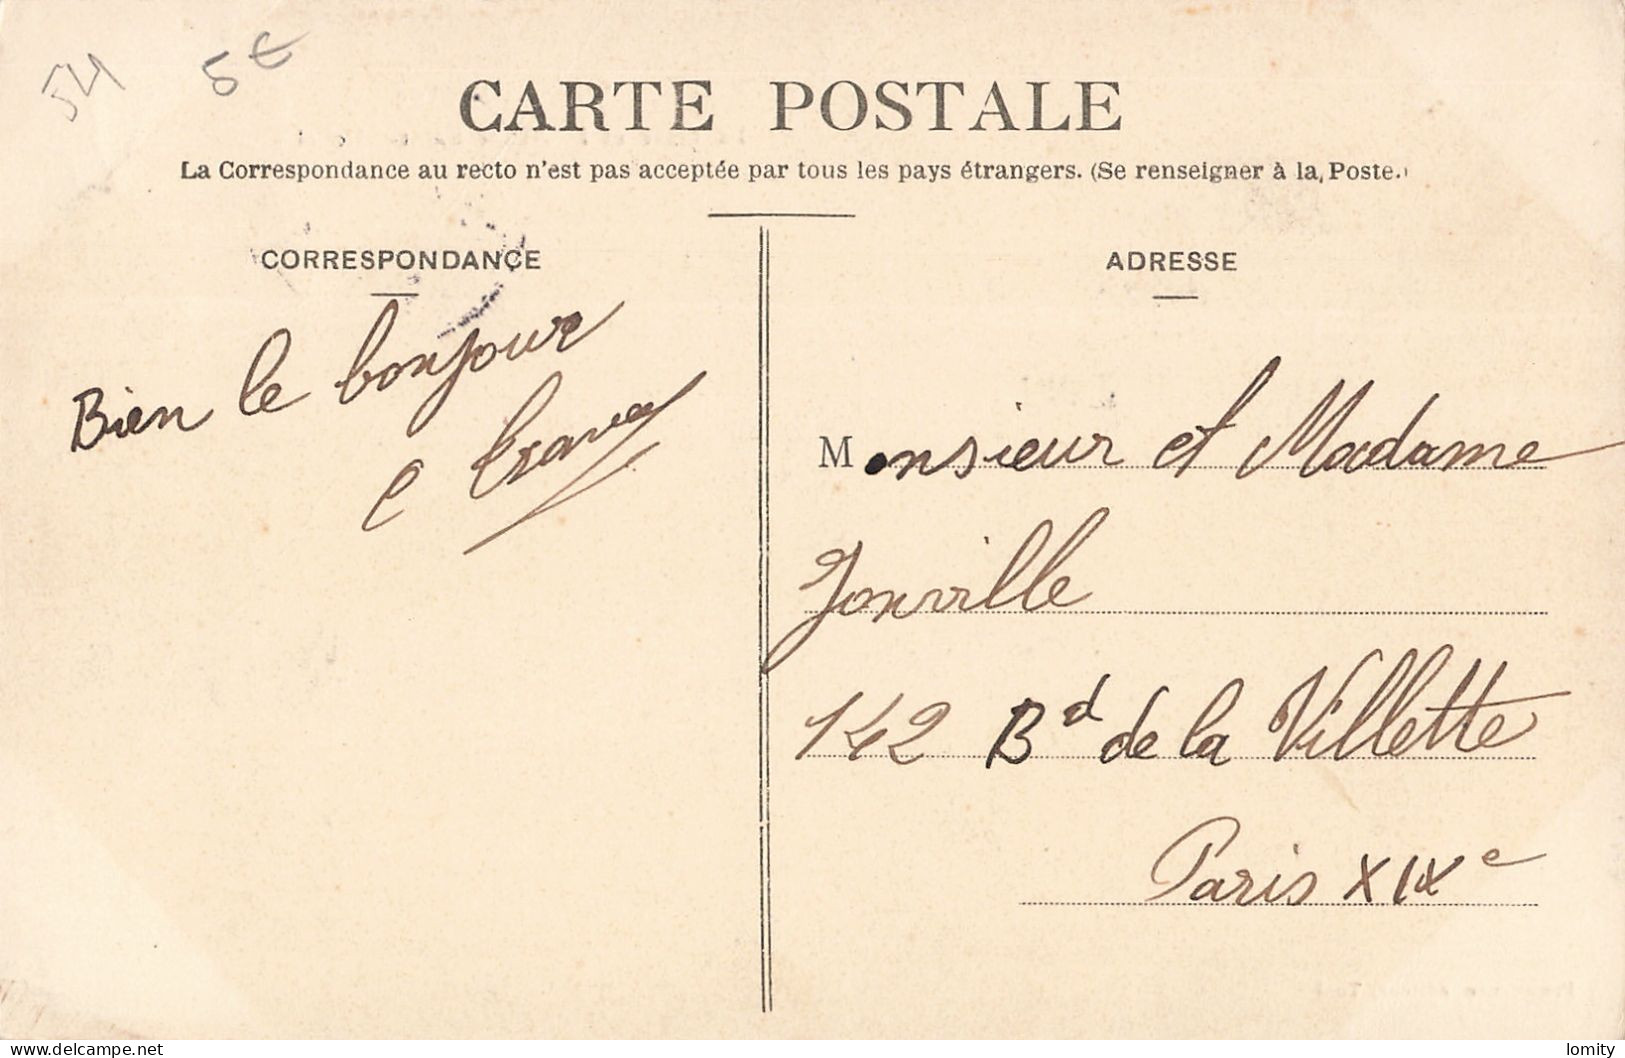 54 5€
CARTE POSTALE
La Correspondance au recto n'est pas acceptée par tous les pays étrangers. (Se renseigner à la Poste.)
CORRESPONDANCE
Bien le bonjour
ADRESSE
Monsieur et Madame
Jonville
142 Bd de la Villette
Paris XIXe
delcampe.net
lomity